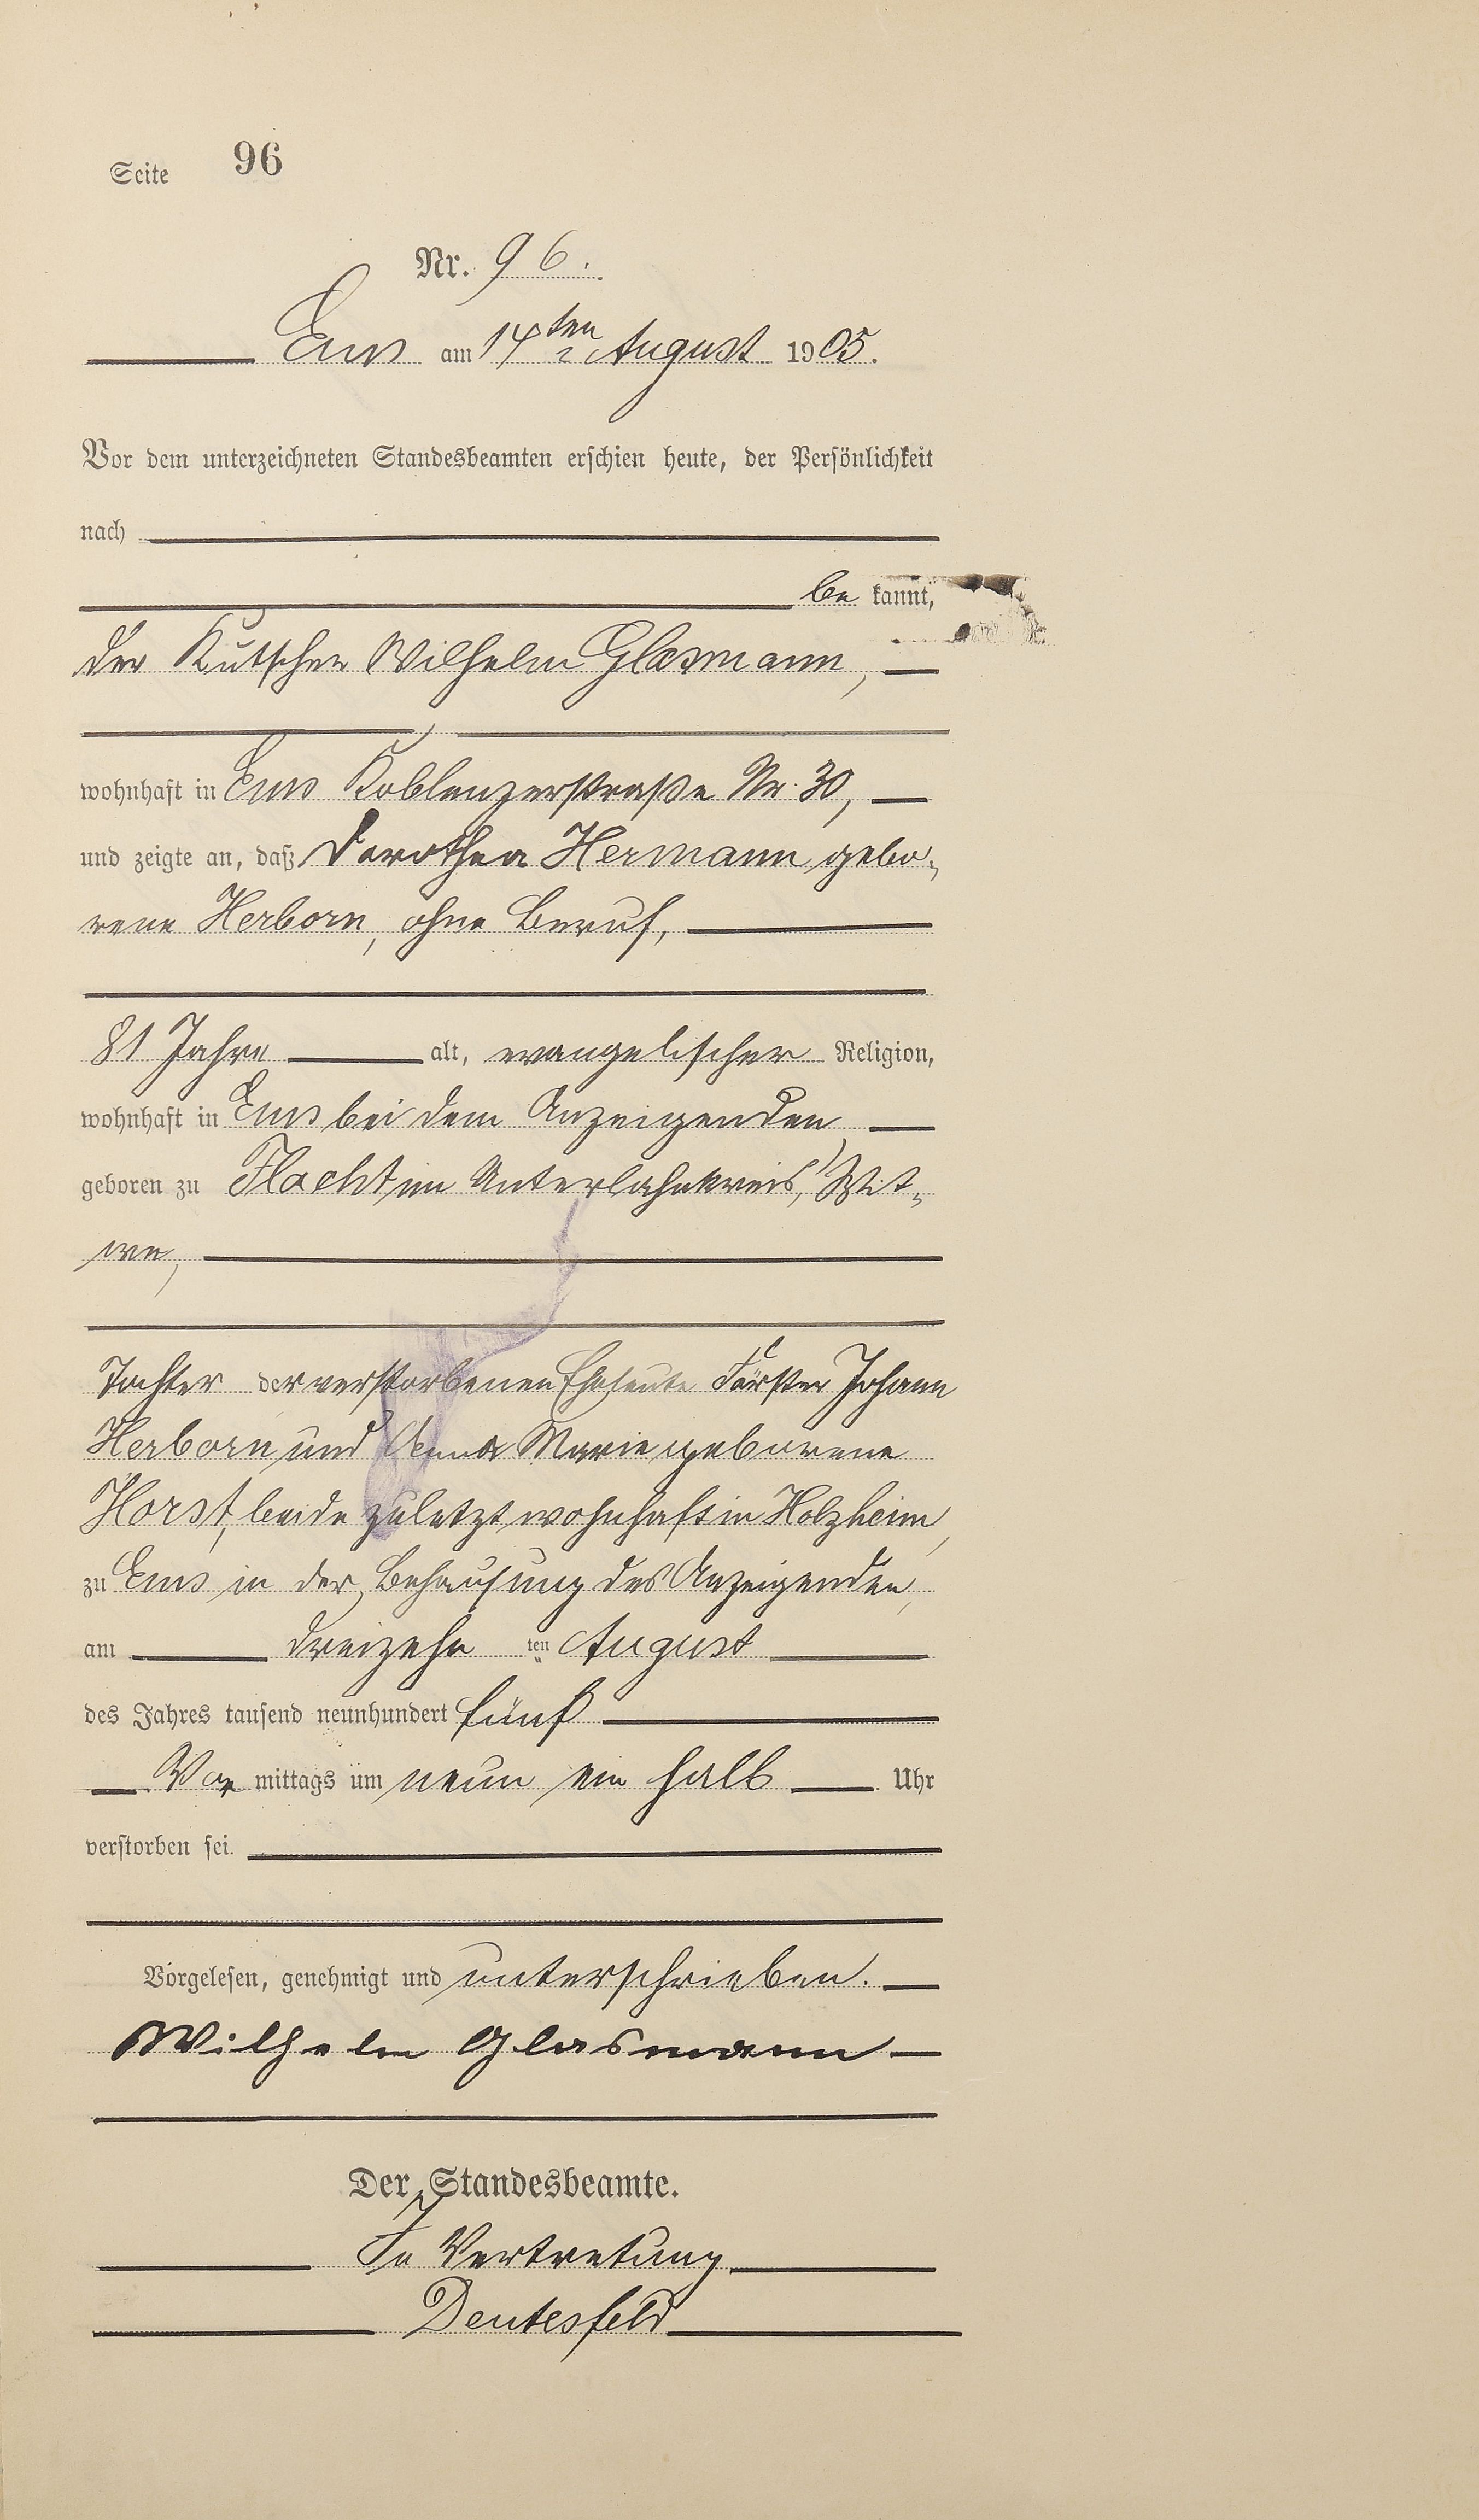 Seite 96
Nr. 96.
Ems am 14ten August 1905.
Vor dem unterzeichneten Standesbeamten erschien heute, der Persönlichkeit
nach
be kannt,
der Kutscher Wilhelm Glasmann,
wohnhaft in Ems Koblenzerstraße Nr. 30,
und zeigte an, daß Dorothea Hermann gebo-
rene Herborn, ohne Beruf,
81 Jahre alt, evangelischer Religion,
wohnhaft in Ems bei dem Anzeigenden,
geboren zu Flacht im Unterlahnkreis, Wit-
we,
Tochter der verstorbenen Eheleute Förster Johann
Herborn und Anna Marie geborene
Horst, beide zuletzt wohnhaft in Holzheim,
zu Ems in der Behausung des Anzeigenden,
am dreizehn ten August
des Jahres tausend neunhundert fünf
Vor mittags um neun ein halb Uhr
verstorben sei.
Vorgelesen, genehmigt und unterschrieben.
Wilhelm Glasmann
Der Standesbeamte.
In Vertretung
Deutesfeld